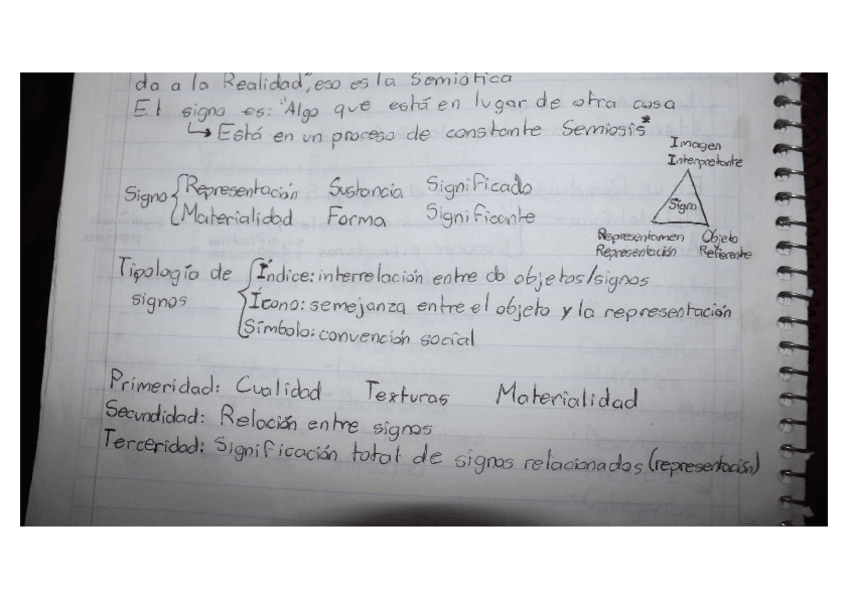 do a la Realidad", eso es la Semiótica
El signo es: "Algo que está en lugar de otra cosa
↳ Está en un proceso de constante Semiosis*
Imagen
Interpretante
Signo { Representación Sustancia Significado
Materialidad Forma Significante
Signo
Representamen Objeto
Representación Referente
Tipología de signos { Índice: interrelación entre do objetos/signos
Ícono: semejanza entre el objeto y la representación
Símbolo: convención social
Primeridad: Cualidad Texturas Materialidad
Secundidad: Relación entre signos
Terceridad: Significación total de signos relacionados (representación)